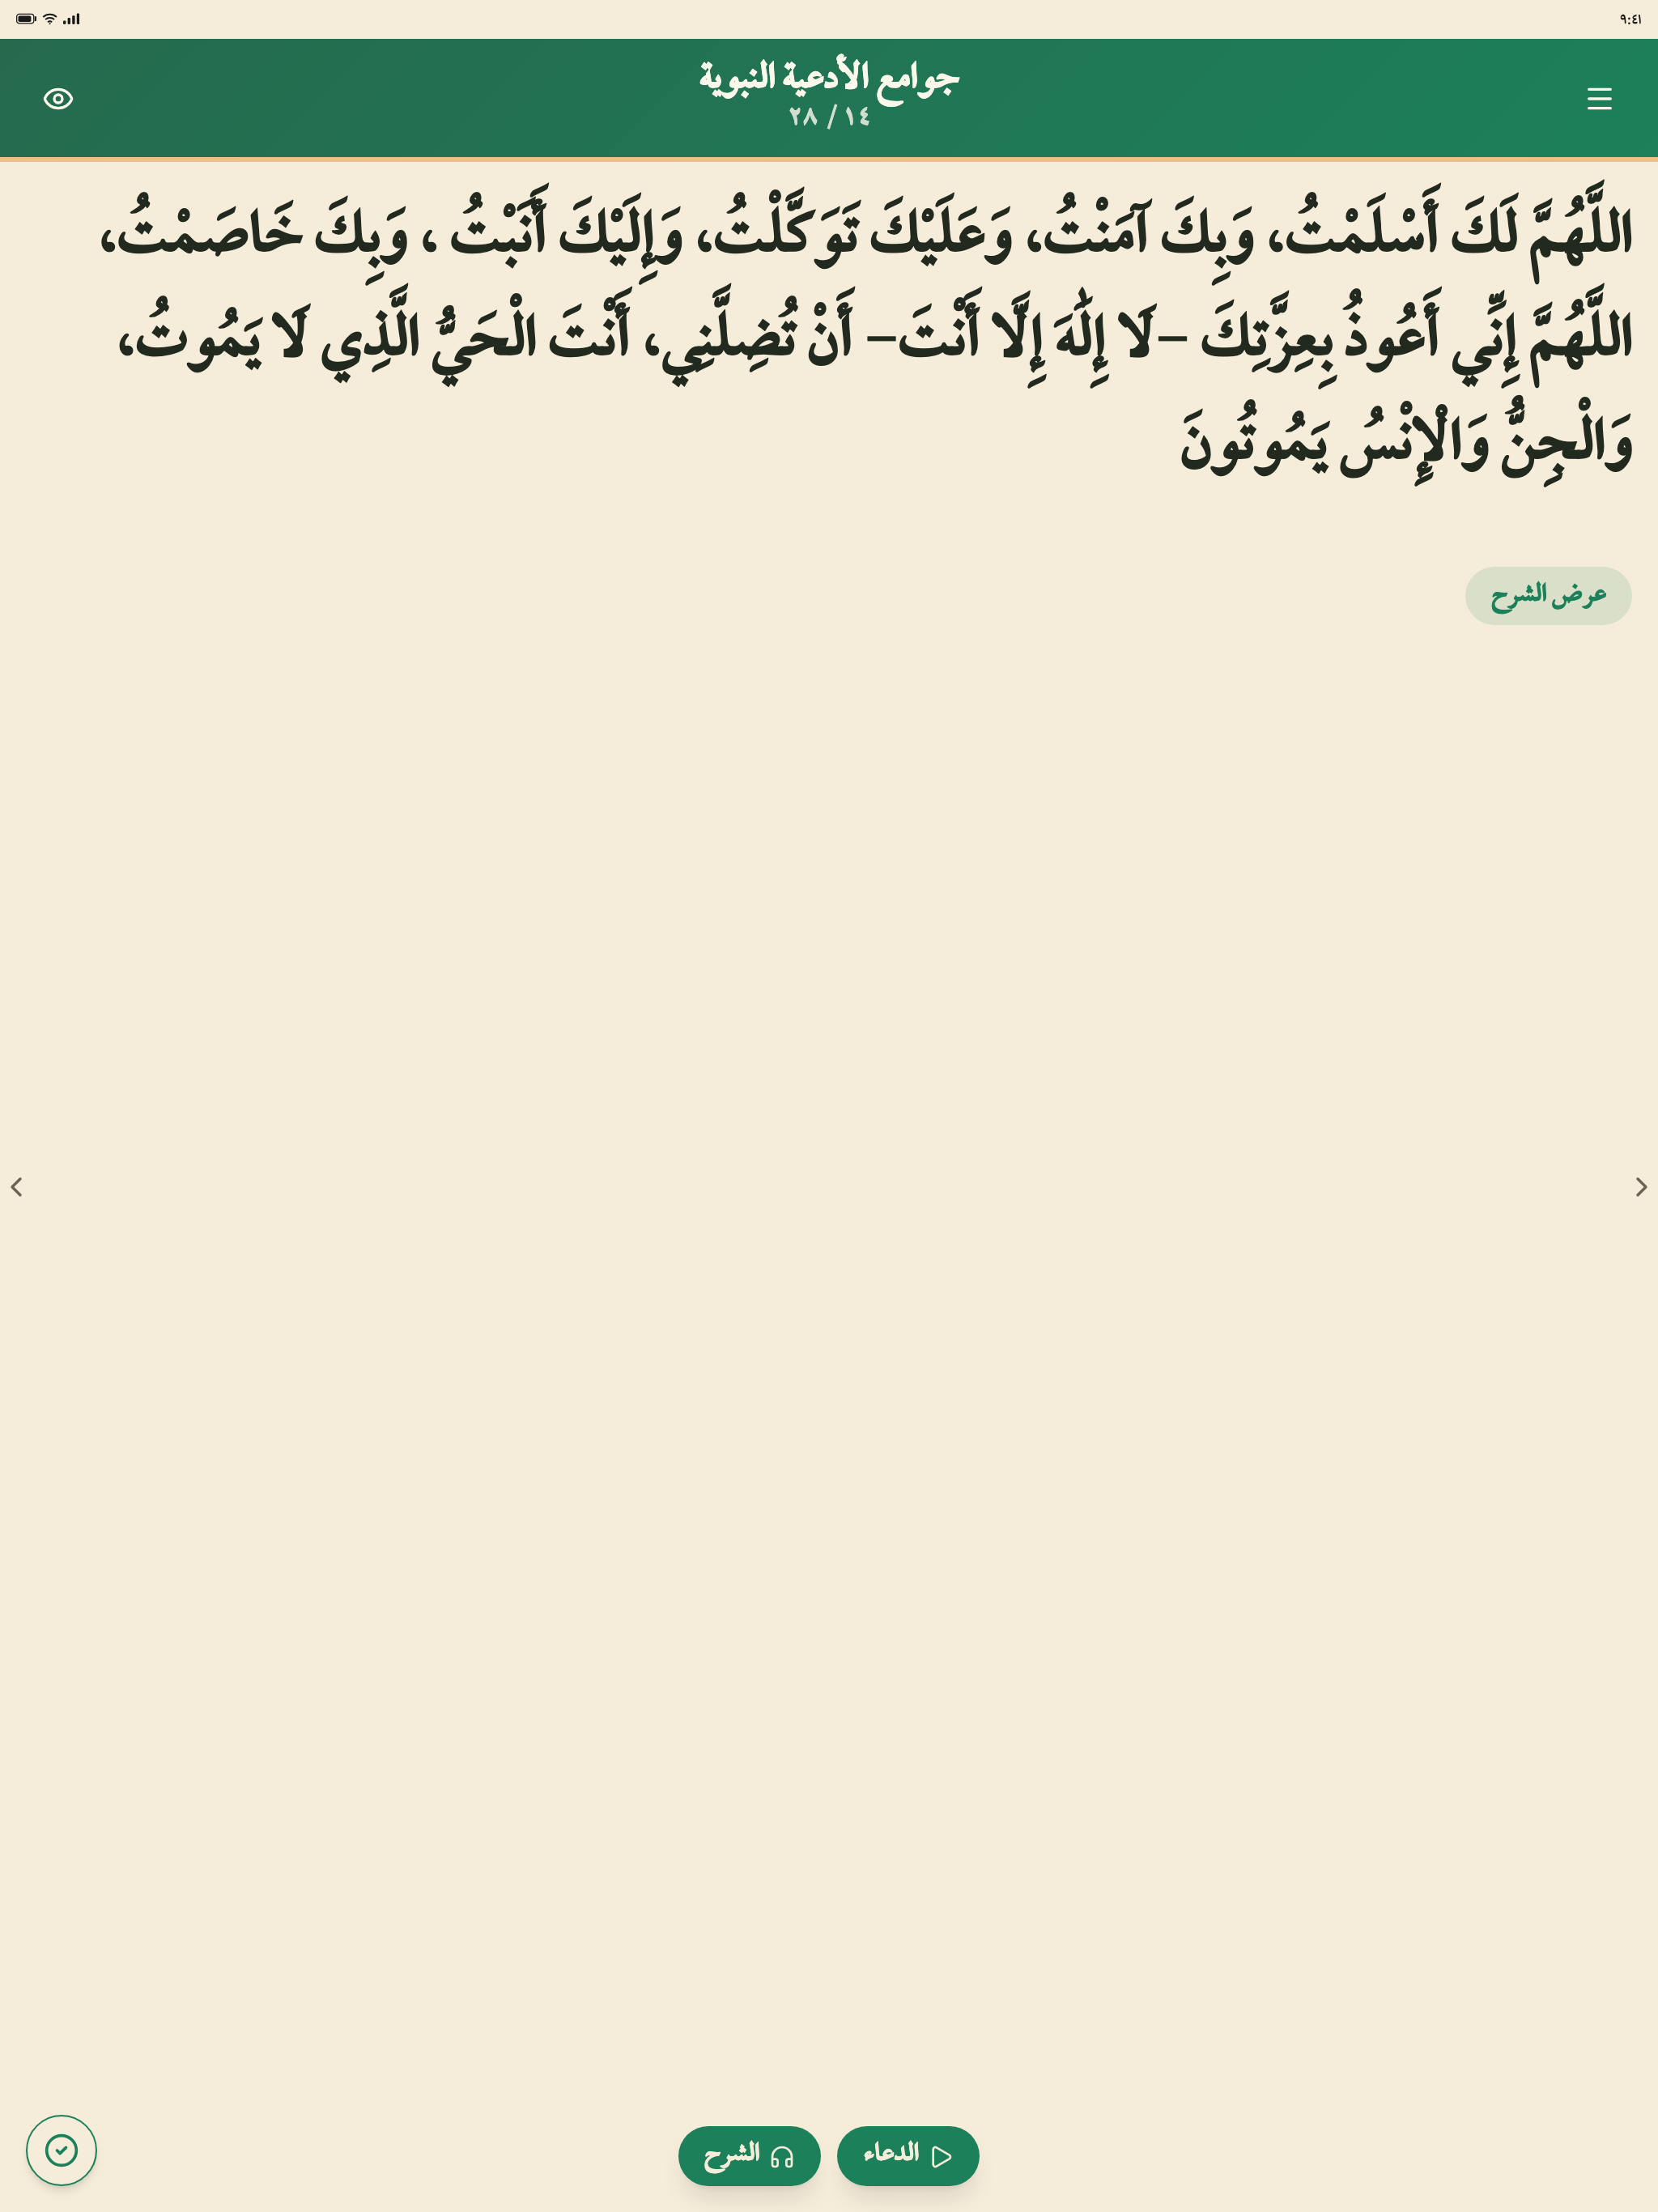 ٩:٤١
جوامع الأدعية النبوية
١٤ / ٢٨
اللَّهُمَّ لَكَ أَسْلَمْتُ، وَبِكَ آمَنْتُ، وَعَلَيْكَ تَوَكَّلْتُ، وَإِلَيْكَ أَنَبْتُ ، وَبِكَ خَاصَمْتُ،
اللَّهُمَّ إِنِّي أَعُوذُ بِعِزَّتِكَ –لَا إِلَٰهَ إِلَّا أَنْتَ– أَنْ تُضِلَّنِي، أَنْتَ الْحَيُّ الَّذِي لَا يَمُوتُ،
وَالْجِنُّ وَالْإِنْسُ يَمُوتُونَ
عرض الشرح
الدعاء
الشرح